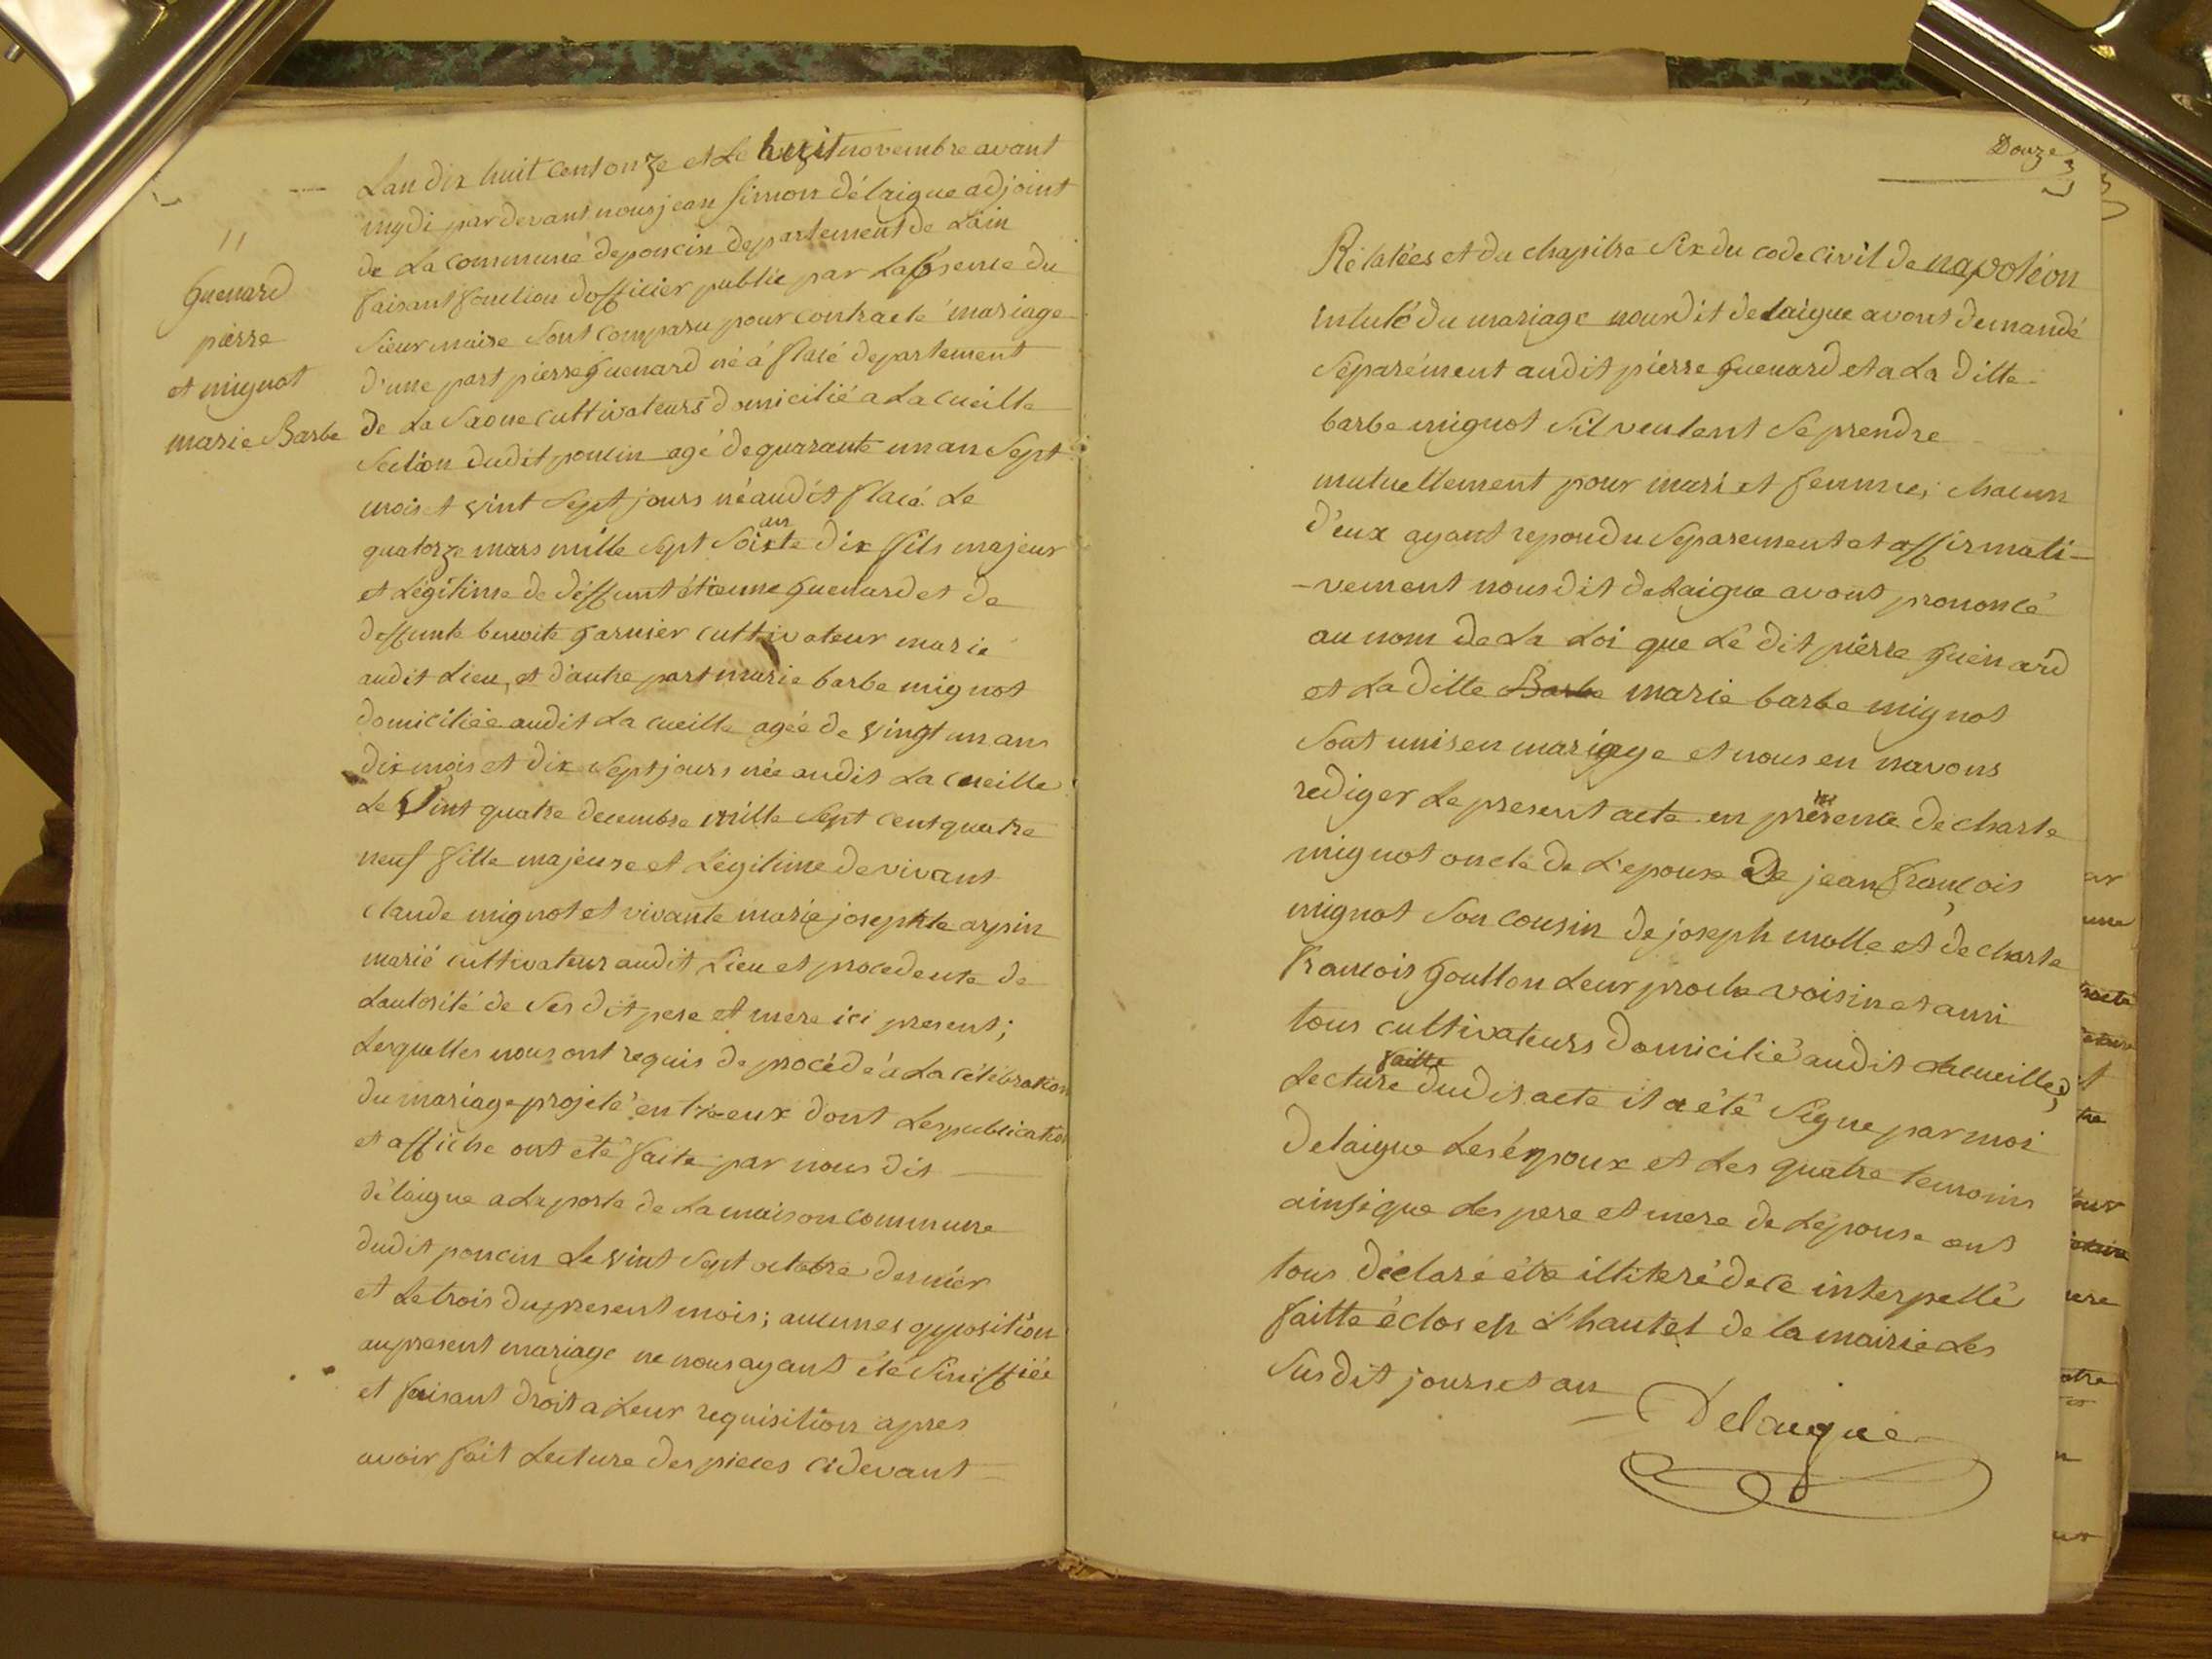 11
Guenard
pierre
et mignot
marie Barbe
Lan dix huit cent onze et Le huit novembre avant
mydi par devant nous jean simon délaigue adjoint
de La commune de poncin departement de Lain
faisant fonction dofficier public par Labsence du
sieur maire sont comparu pour contracté mariage
d'une part pierre guenard né á flacé departement
de La Saone cultivateurs domicilié a La cueille
Section dudit poncin agé de quarante un an sept
mois et vint sept jours né audit flacé Le
quatorze mars mille sept soixante dix fils majeur
et Légitime de déffunt étienne guenard et de
deffunte benoite garnier cultivateur marié
audit Lieu, et d'autre part marie barbe mignot
domiciliée audit La cueille agée de vingt un ans
dix mois et dix sept jours née audit La cueille
Le vint quatre decembre mille sept cent quatre
neuf fille majeure et Légitime de vivant
claude mignot et vivante marie josephte arpin
marié cultivateur audit Lieu et procedente de
Lautosité de ses dit pere et mere ici present;
Lesquelles nous ont requis de procédé á La célébration
du mariage projeté entre eux dont Les publication
et affiche ont été faite par nous dit
délaigue a La porte de La maison commune
dudit poncin Le vint sept octobre dernier
et Le trois du present mois; aucunes opposition
au present mariage ne nous ayant été siniffiée
et faisant droit a Leur requisition apres
avoir fait Lecture des pieces cidevant
Douze
Rélatées et du chapitre six du code civil de napoléon
intulé du mariage nous dit delaigue avons demandé
séparément audit pierre guenard et a La ditte
barbe mignot sil veulent se prendre
mutuellement pour mari et femme; chacun
d'eux ayant repondu separement et affirmati-
-vement nous dit delaigue avons prononcé
au nom de La Loi que Lé dit pierre guénard
et La ditte Barbe marie barbe mignot
sont unis en mariage et nous en navons
rediger Le present acte en présence de charle
mignot oncle de L'epouse De jean françois
mignot son cousin de joseph molle et de charle
francois goutton Leur proche voisin et ami
tous cultivateurs domicilié audit Lacueille;
Lecture faitte dudit acte il a été signe par moi
delaigue Les époux et Les quatre temoins
ainsi que Les pere et mere de Lépouse ont
tous déclaré étre illiteré de ce interpellé
faitte éclos en L'hautel de la mairie Les
susdit jours et an
Delaigue